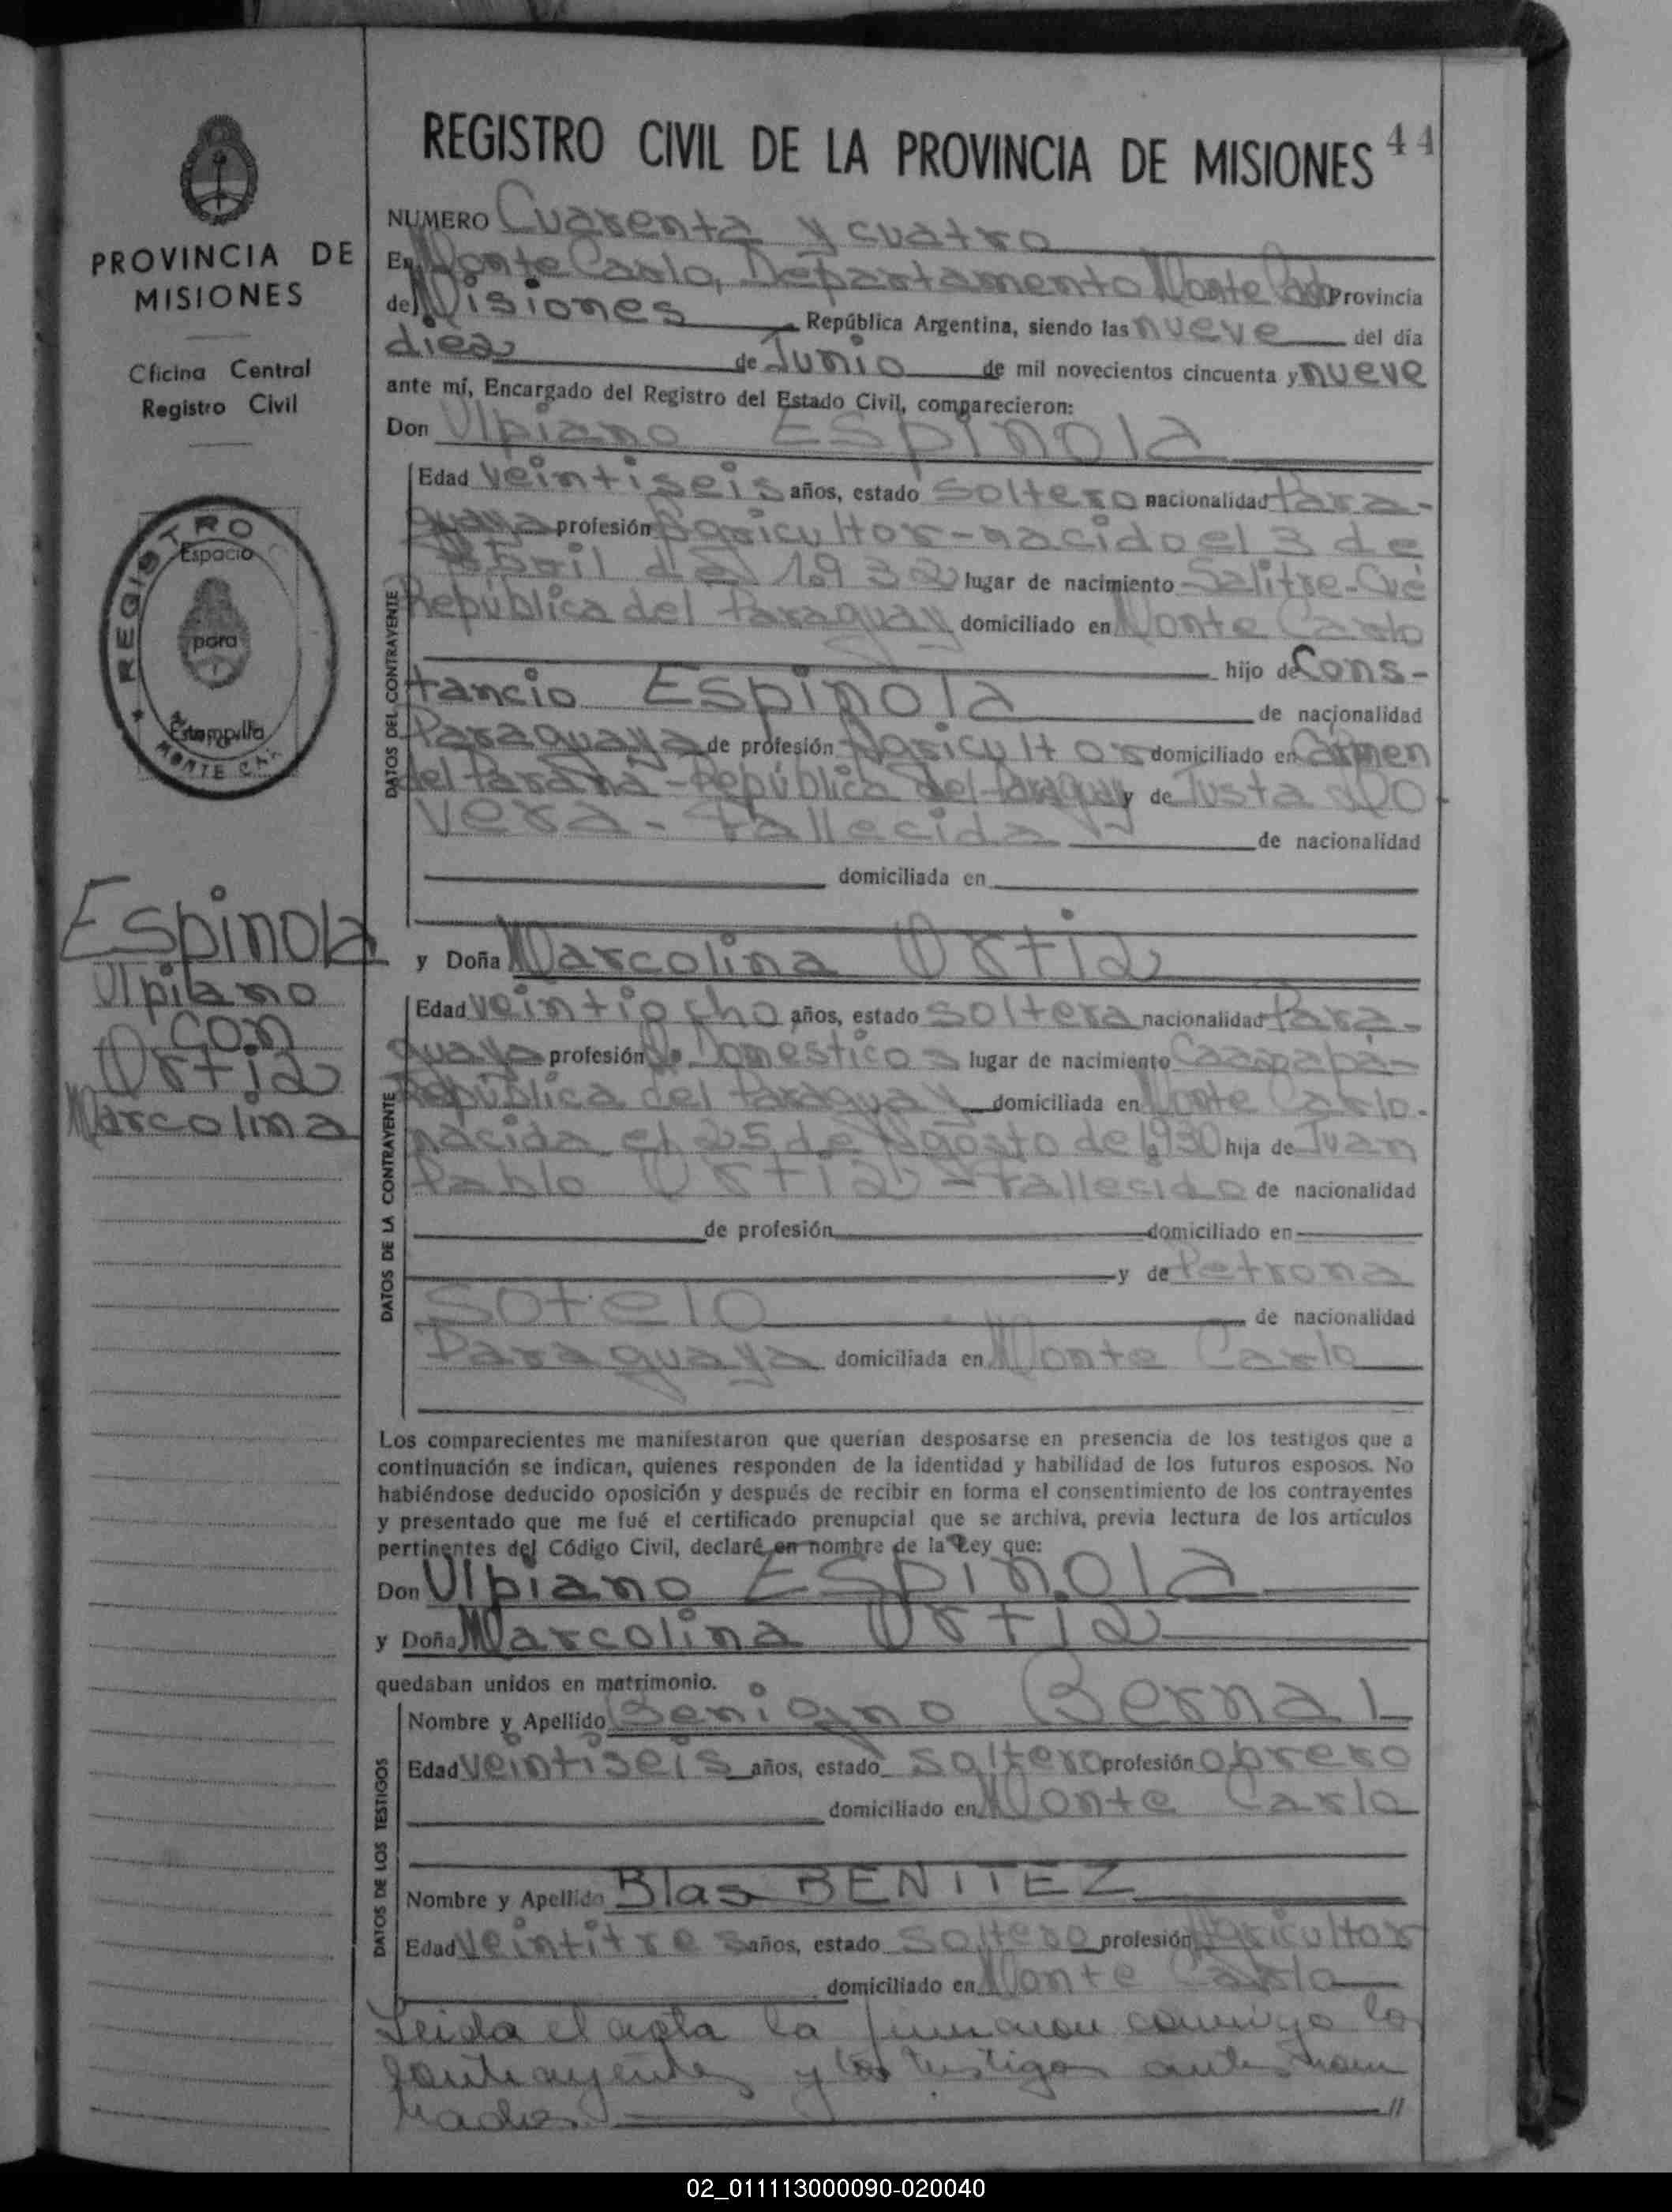 PROVINCIA DE
MISIONES
Oficina Central
Registro Civil
REGISTRO
Espacio
para
Estampilla
MONTE CAR
Espinola
Ulpiano
con
Ortiz
Marcolina
REGISTRO CIVIL DE LA PROVINCIA DE MISIONES 44
NUMERO Cuarenta y cuatro
En Monte Carlo, Departamento Monte Carlo Provincia
de Misiones República Argentina, siendo las nueve del día
diez de Junio de mil novecientos cincuenta y nueve
ante mí, Encargado del Registro del Estado Civil, comparecieron:
Don Ulpiano Espinola
DATOS DEL CONTRAYENTE
Edad veintiseis años, estado soltero nacionalidad Para-
guaya profesión Agricultor-nacido el 3 de
Abril de 1932 lugar de nacimiento Salitre-Cué
República del Paraguay domiciliado en Monte Carlo
hijo de Cons-
tancio Espinola de nacionalidad
Paraguaya de profesión Agricultor domiciliado en Cármen
del Paraná-República del Paraguay y de Justa
Vera-fallecida de nacionalidad
domiciliada en
y Doña Marcolina Ortiz
DATOS DE LA CONTRAYENTE
Edad veintiocho años, estado soltera nacionalidad Para-
guaya profesión Domestico s lugar de nacimiento Caazapá-
República del Paraguay domiciliada en Monte Carlo-
nacida el 25 de Agosto de 1930 hija de Juan
Pablo Ortiz-fallecido de nacionalidad
de profesión domiciliado en
y de Petrona
Sotelo de nacionalidad
Paraguaya domiciliada en Monte Carlo
Los comparecientes me manifestaron que querían desposarse en presencia de los testigos que a
continuación se indican, quienes responden de la identidad y habilidad de los futuros esposos. No
habiéndose deducido oposición y después de recibir en forma el consentimiento de los contrayentes
y presentado que me fué el certificado prenupcial que se archiva, previa lectura de los artículos
pertinentes del Código Civil, declaré en nombre de la Ley que:
Don Ulpiano Espinola
y Doña Marcolina Ortiz
quedaban unidos en matrimonio.
DATOS DE LOS TESTIGOS
Nombre y Apellido Benigno Bernal
Edad veintiseis años, estado soltero profesión obrero
domiciliado en Monte Carlo
Nombre y Apellido Blas BENITEZ
Edad veintitres años, estado soltero profesión Agricultor
domiciliado en Monte Carlo
Leida el acta la firmaron conmigo los
contrayentes y los testigos antes nom
brados //
02_011113000090-020040